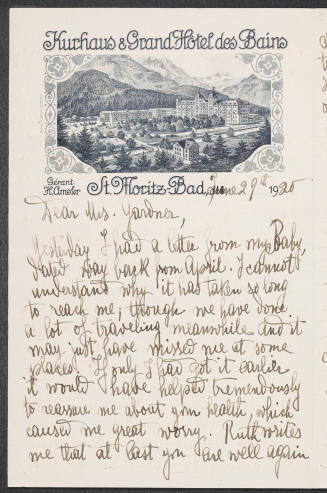 Kurhaus & Grand Hôtel des Bains
Gérant
H. Amsler
St. Moritz-Bad, June 29th 1920
Dear Mrs. Gardner,
Yesterday I had a letter from my Baby,
dated way back from April. I cannot
understand why it has taken so long
to reach me; though we have done
a lot of traveling meanwhile and it
may just have missed me at some
places. If only I had got it earlier
it would have helped tremendously
to reassure me about your health, which
caused me great worry. Ruth writes
me that at last you are well again